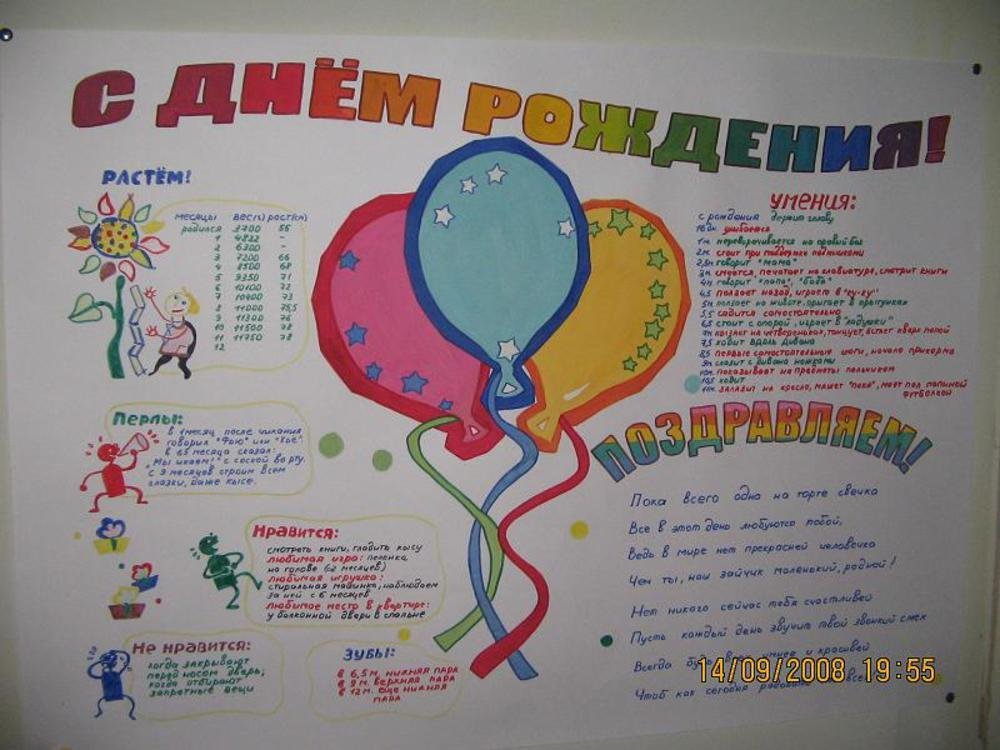 С ДНЁМ РОЖДЕНИЯ!
РАСТЁМ!
месяцы вес(г) рост(см)
родился 3700 55
1 4822 -
2 6300 -
3 7200 66
4 8500 68
5 9250 71
6 10100 72
7 10400 73
8 11000 75,5
9 11300 76
10 11500 78
11 11750 78
12
Перлы:
в 1 месяц после чихания
говорил "Фью" или "Хье".
в 6,5 месяца сказал:
„Мы икаем!" с соской во рту.
С 9 месяцев строим всем
глазки, даже кысе.
Нравится:
смотреть книги, гладить кысу
любимая игра: пеленка
на голове (12 месяцев)
любимая игрушка:
стиральная машинка, наблюдаем
за ней с 6 месяцев
любимое место в квартире:
у балконной двери в спальне
Не нравится:
когда закрывают
перед носом дверь;
когда отбирают
запретные вещи
ЗУБЫ:
в 6,5м. нижняя пара
в 9 м. верхняя пара
в 12 м. еще нижняя
пара
умения:
с рождения держит голову
улыбается
1м переворачивается на правый бок
2м стоит при поддержке подмышками
говорит "мама"
3м смеется, печатает на клавиатуре, смотрит книги
4м говорит "папа", "баба"
4,5 ползает назад, играет в "ку-ку"
5м ползает на животе, прыгает в прыгунках
5,5 садится самостоятельно
6,5 стоит с опорой, играет в "ладушки"
7м ползает на четвереньках, танцует, встает
7,5 ходит вдоль дивана
8,5 первые самостоятельные шаги, начало прикорма
9м слазит с дивана ножками
10м показывает на предметы пальчиком
10,5 ходит
11м залазит на кресло, машет "пока", моет пол папиной
футболкой
ПОЗДРАВЛЯЕМ!
Пока всего одна на торте свечка
Все в этот день любуются тобой,
Ведь в мире нет прекрасней человечка
Чем ты, наш зайчик маленький, родной!
Нет никого сейчас тебя счастливей
Пусть каждый день звучит твой звонкий смех
Всегда умнее и красивей
Чтоб как сегодня
14/09/2008 19:55